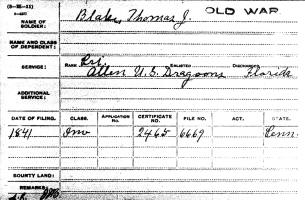 (3-111-11)
Blake, Thomas J. OLD WAR
NAME OF
SOLDIER:
NAME AND CLASS
OF DEPENDENT:
SERVICE:
RANK Pri. ENLISTED DISCHARGED
Allen U.S. Dragoons Florida
ADDITIONAL
SERVICE:
DATE OF FILING. CLASS. APPLICATION No. CERTIFICATE NO. FILE NO. ACT. STATE
1841 Inv 2465 6669 Tenn.
BOUNTY LAND:
REMARKS: